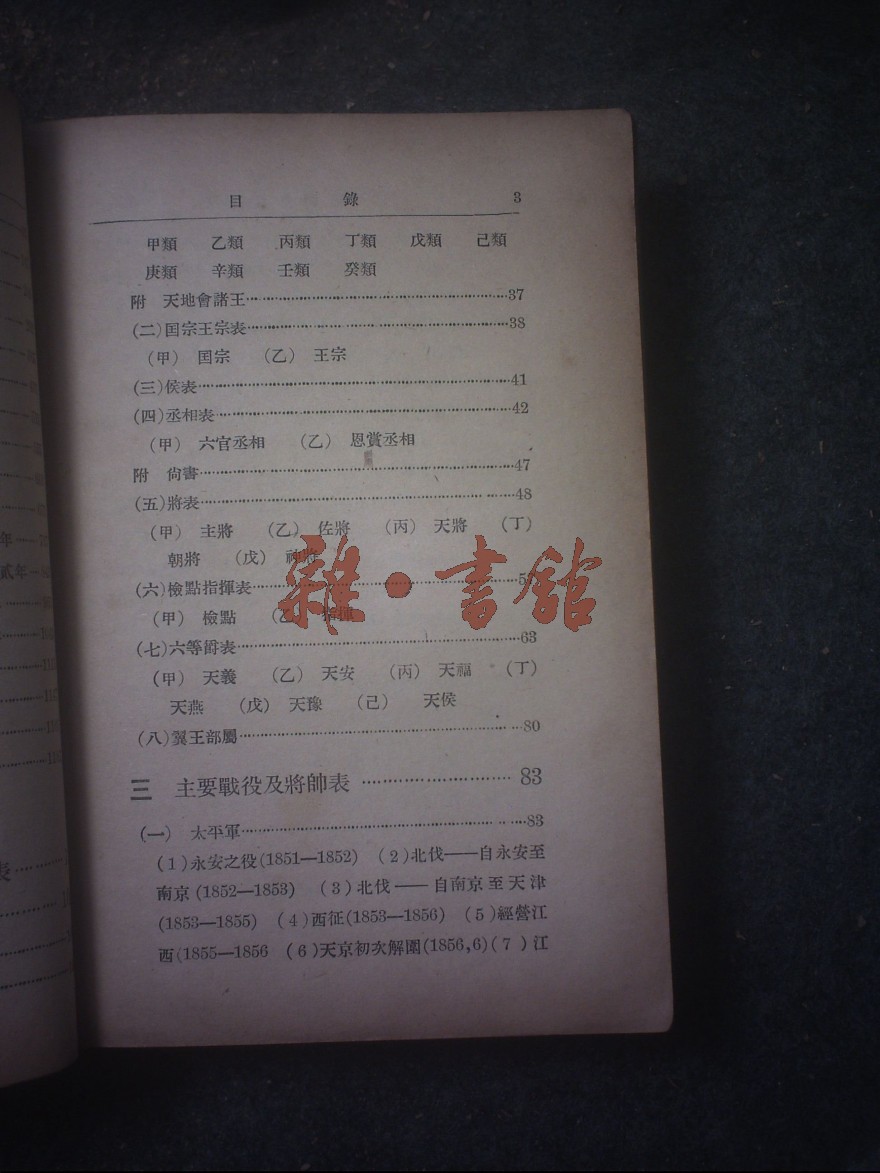 目 錄 3
甲類 乙類 丙類 丁類 戊類 己類
庚類 辛類 壬類 癸類
附 天地會諸王……37
(二)囯宗王宗表……38
(甲) 囯宗 (乙) 王宗
(三)侯表……41
(四)丞相表……42
(甲) 六官丞相 (乙) 恩賞丞相
附 尙書……47
(五)將表……48
(甲) 主將 (乙) 佐將 (丙) 天將 (丁)
朝將 (戊) 神將
(六)檢點指揮表……5
(甲) 檢點 (乙) 指揮
(七)六等爵表……63
(甲) 天義 (乙) 天安 (丙) 天福 (丁)
天燕 (戊) 天豫 (己) 天侯
(八)翼王部屬……80
三 主要戰役及將帥表……83
(一) 太平軍……83
(1)永安之役(1851—1852) (2)北伐——自永安至
南京(1852—1853) (3)北伐——自南京至天津
(1853—1855) (4)西征(1853—1856) (5)經營江
西(1855—1856 (6)天京初次解圍(1856,6)(7)江
雜·書館
年
貳年
表